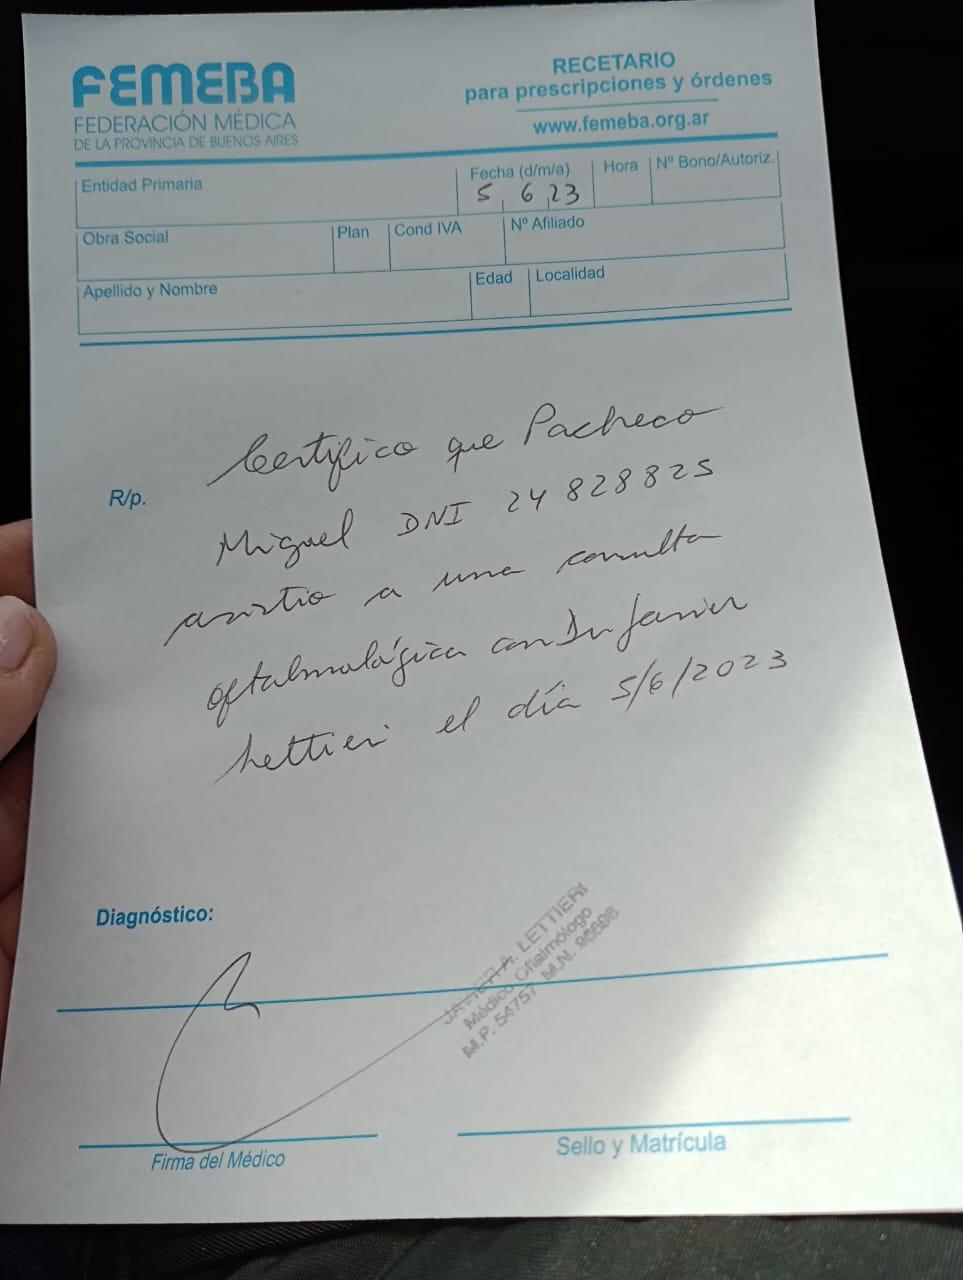 FEMEBA
FEDERACIÓN MÉDICA
DE LA PROVINCIA DE BUENOS AIRES
RECETARIO
para prescripciones y órdenes
www.femeba.org.ar
Entidad Primaria
Fecha (d/m/a)
5 6 23
Hora
Nº Bono/Autoriz.
Obra Social
Plan
Cond IVA
Nº Afiliado
Apellido y Nombre
Edad
Localidad
R/p.
Certifico que Pacheco
Miguel DNI 24 828825
asistio a una consulta
oftalmológica con Dr Javier
Lettieri el día 5/6/2023
Diagnóstico:
JAVIER A. LETTIERI
Médico Oftalmólogo
M.P. 54757 M.N.
Firma del Médico
Sello y Matrícula